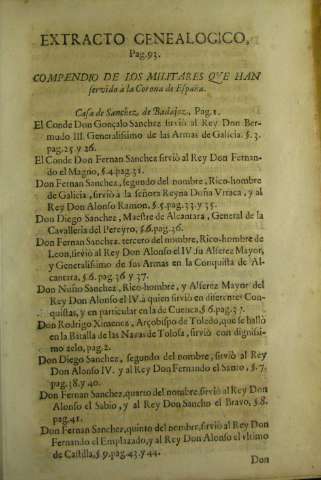 EXTRACTO GENEALOGICO,
Pag.93.
COMPENDIO DE LOS MILITARES QVE HAN
servido à la Corona de España.
Casa de Sanchez, de Badajoz, Pag.1.
El Conde Don Gonçalo Sanchez sirviò al Rey Don Ber-
mudo III. Generalissimo de las Armas de Galicia. §. 3.
pag.25 y 26.
El Conde Don Fernan Sanchez sirviò al Rey Don Fernan-
do el Magno, §.4.pag.31.
Don Fernan Sanchez, segundo del nombre, Rico-hombre
de Galicia, sirviò à la señora Reyna Doña Vrraca, y al
Rey Don Alonso Ramon, §.5.pag.33.y 35.
Don Diego Sanchez, Maestre de Alcantara, General de la
Cavalleria del Pereyro, §.6.pag.36.
Don Fernan Sanchez, tercero del nombre, Rico-hombre de
Leon, sirviò al Rey Don Alonso el IV. su Alferez Mayor,
y Generalissimo de sus Armas en la Conquista de Al-
cantara, §.6. pag.36 y 37.
Don Nuño Sanchez, Rico-hombre, y Alferez Mayor del
Rey Don Alonso el IV. à quien sirviò en diferentes Con-
quistas, y en particular en la de Cuenca, §.6.pag.37.
Don Rodrigo Ximenez, Arçobispo de Toledo, que se hallò
en la Batalla de las Navas de Tolosa, sirviò con dignissi-
mo zelo, pag.2.
Don Diego Sanchez, segundo del nombre, sirviò al Rey
Don Alonso IV. y al Rey Don Fernando el Santo, §. 7.
pag.38.y 40.
Don Fernan Sanchez, quarto del nombre, sirviò al Rey Don
Alonso el Sabio, y al Rey Don Sancho el Bravo, §.8.
pag.41.
Don Fernan Sanchez, quinto del nombre, sirviò al Rey Don
Fernando el Emplazado, y al Rey Don Alonso el vltimo
de Castilla, §.9.pag.43.y 44.
Don